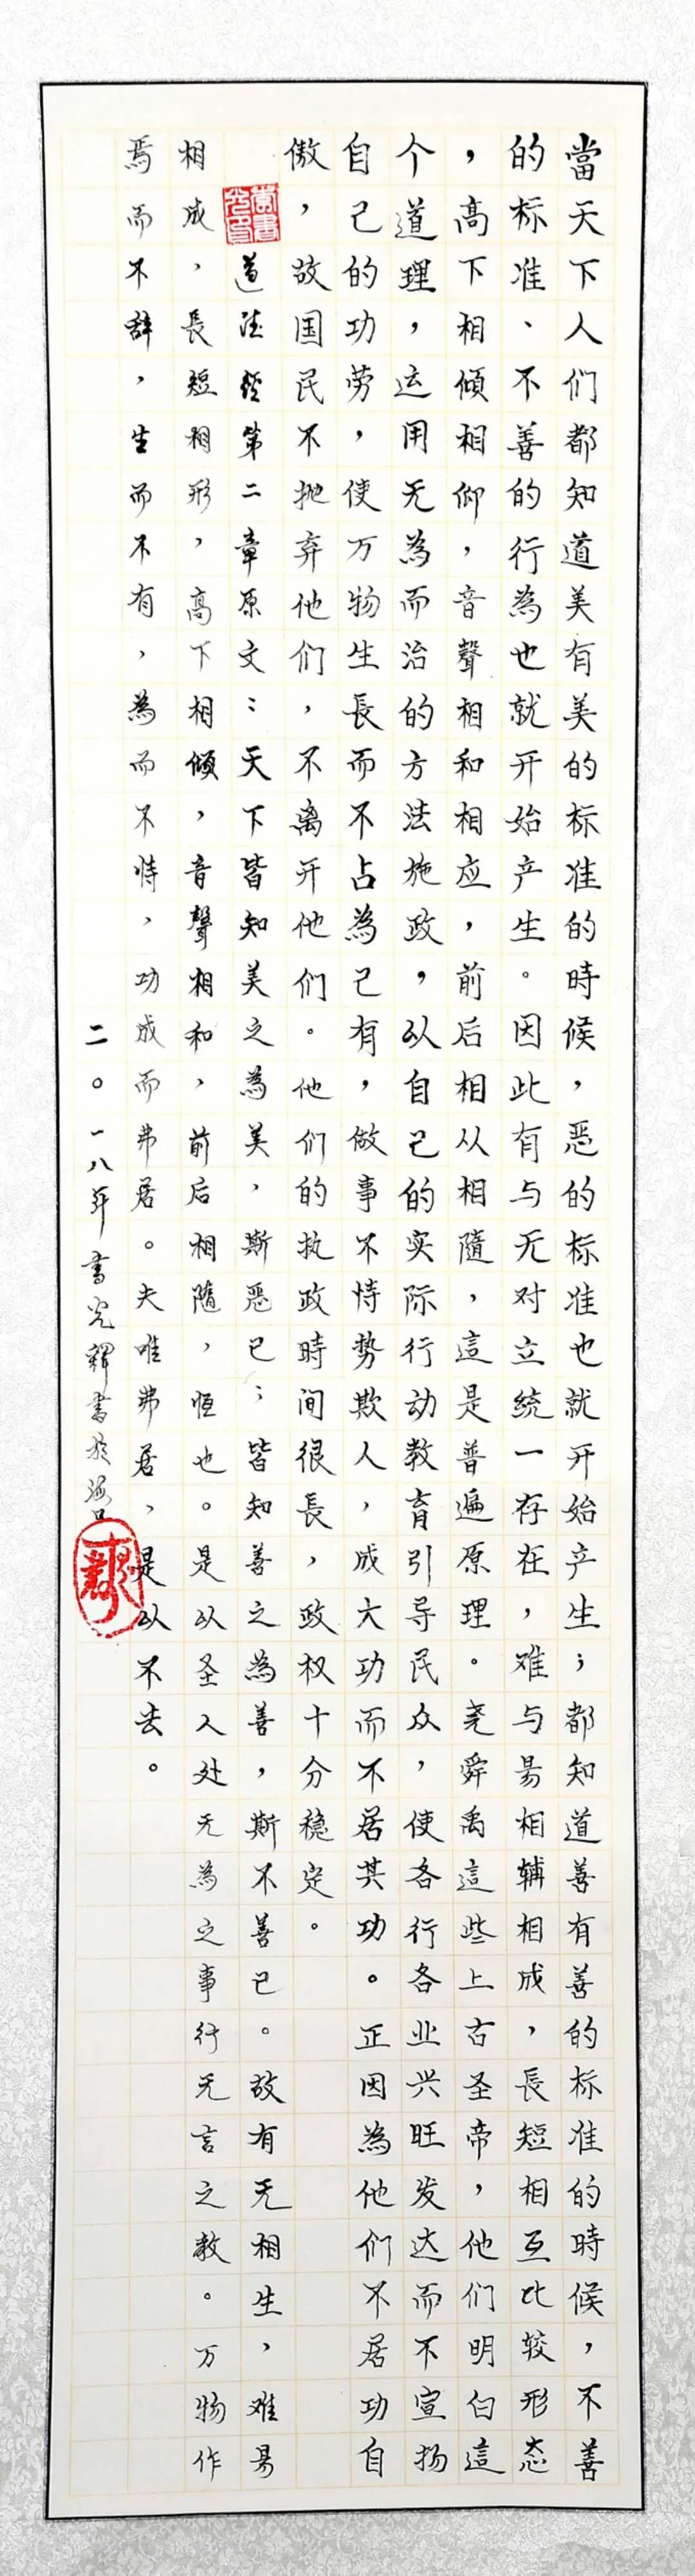 當天下人们都知道美有美的标准的時候，恶的标准也就开始产生；都知道善有善的标准的時候，不善
的标准、不善的行為也就开始产生。因此有与无对立统一存在，难与易相辅相成，長短相互比较形态
，高下相傾相仰，音聲相和相应，前后相从相隨，這是普遍原理。尧舜禹這些上古圣帝，他们明白這
个道理，运用无為而治的方法施政，以自己的实际行动教育引导民众，使各行各业兴旺发达而不宣扬
自己的功劳，使万物生長而不占為己有，做事不恃势欺人，成大功而不居其功。正因為他们不居功自
傲，故国民不抛弃他们，不离开他们。他们的执政時间很長，政权十分稳定。
道德經第二章原文：天下皆知美之為美，斯恶已；皆知善之為善，斯不善已。故有无相生，难易
相成，長短相形，高下相傾，音聲相和，前后相隨，恒也。是以圣人处无為之事行无言之教。万物作
焉而不辞，生而不有，為而不恃，功成而弗居。夫唯弗居，是以不去。
二〇一八年書光釋書於海口